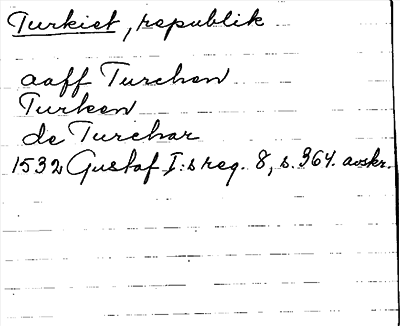 Turkiet, republik
aaff Turchen
Turken
de Turchar
1532 Gustaf I:s reg. 8, s. 364. avskr.